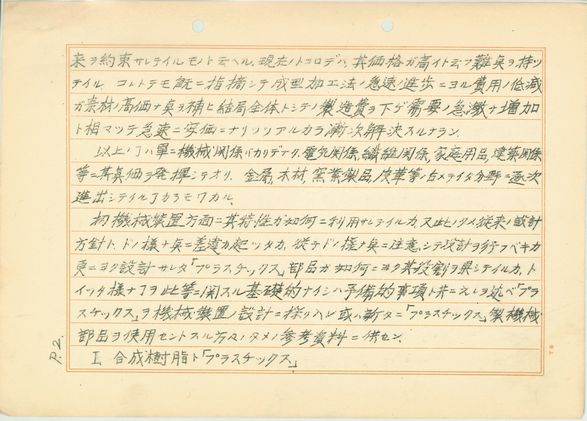 来ヲ約束サレテイルモノト云ヘル。現在ノトコロデハ、其価格ガ高イト云フ難点ヲ持ツ
テイル。コレトテモ既ニ指摘シテ成型加工法ノ急速進歩ニヨル費用ノ低減
ガ素材ノ高価ナ点ヲ補ヒ結局全体トシテノ製造費ヲ下ゲ需要ノ急激ナ増加
ト相マツテ急速ニ安価ニナリツツアルカラ漸次解決スルナラン。
以上ノ事ハ単ニ機械関係バカリデナク、電気関係、繊維関係、家庭用品、建築関係
等ニ其真価ヲ発揮シテオリ、金属、木材、窯業製品、皮革等ノ占メテイタ分野ヘ逐次
進出シテイル事カラモワカル。
初機械装置方面ニ其特性ガ如何ニ利用サレテイルカ、又此ノタメ従来ノ設計
方針ト、ドノ様ナ点ニ差違ガ起ツタカ、従テドノ様ナ点ニ注意シテ設計ヲ行フベキカ
更ニヨク設計サレタ「プラスチックス」部品ガ如何ニヨク其役割ヲ果シテイルカ、ト
イツタ様ナ事ヲ此等ニ関スル基礎的ナイシハ予備的事項ト共ニ之レヲ述ベ「プラ
スチックス」ヲ機械装置ノ設計ニ採リ入レ或ハ新タニ「プラスチックス」製機械
部品ヲ使用セントスル方々ノタメノ参考資料ニ供セン。
I 合成樹脂ト「プラスチックス」
P.2.